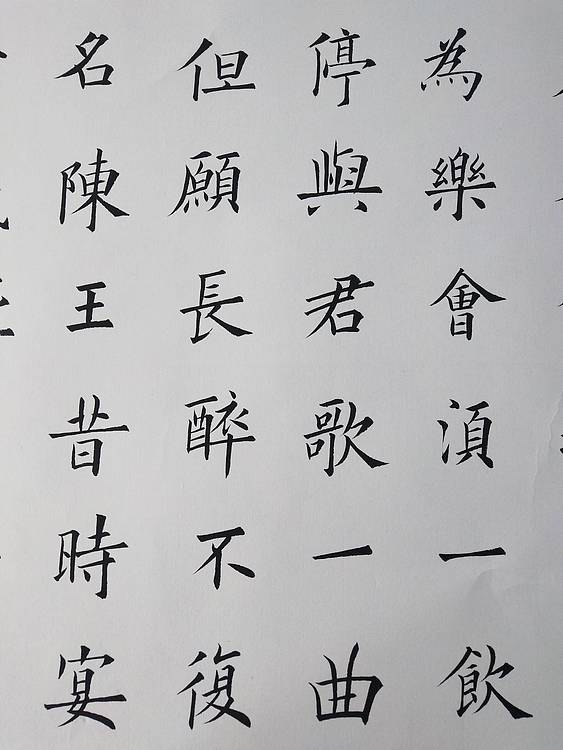 為樂會湏一飲
停與君歌一曲
但願長醉不復
名陳王昔時宴